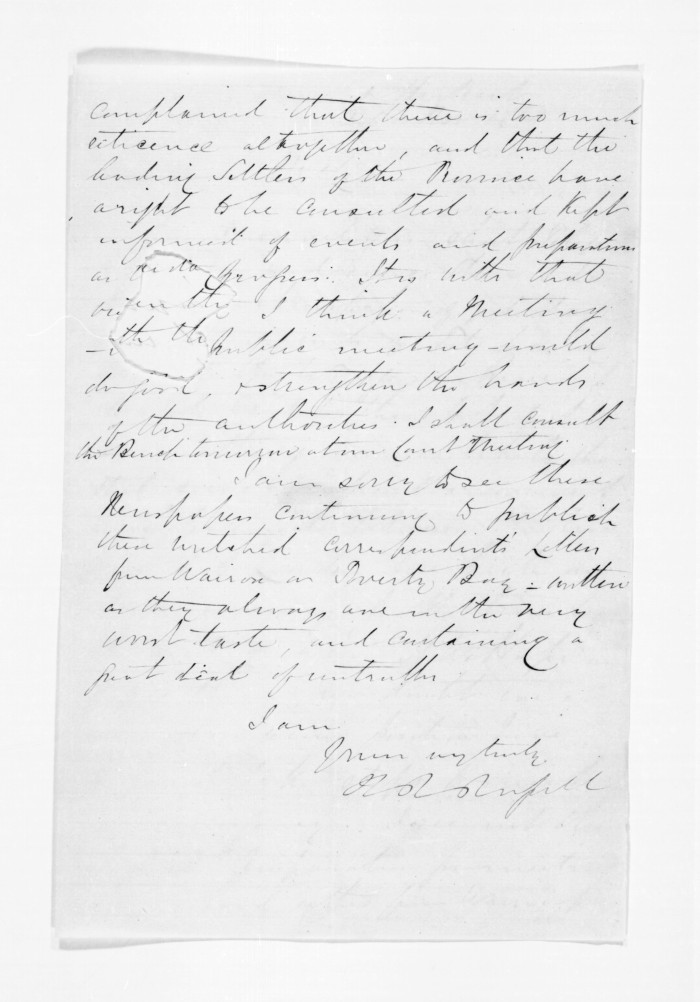 complained that there is too much
reticence altogether, and that the
leading Settlers of the Province have
a right to be consulted and kept
informed of events and preparations
as in progress. It is with that
view I think a Meeting
- public meeting - would
do good, & strengthen the hands
of the authorities. I shall consult
the Bench tomorrow at our Court Meeting
I am sorry to see these
Newspapers continuing to publish
these wretched correspondents' Letters
from Wairoa or Poverty Bay - written
as they always are in the very
worst taste, and containing a
great deal of untruths
I am
Yours very truly
H R Russell